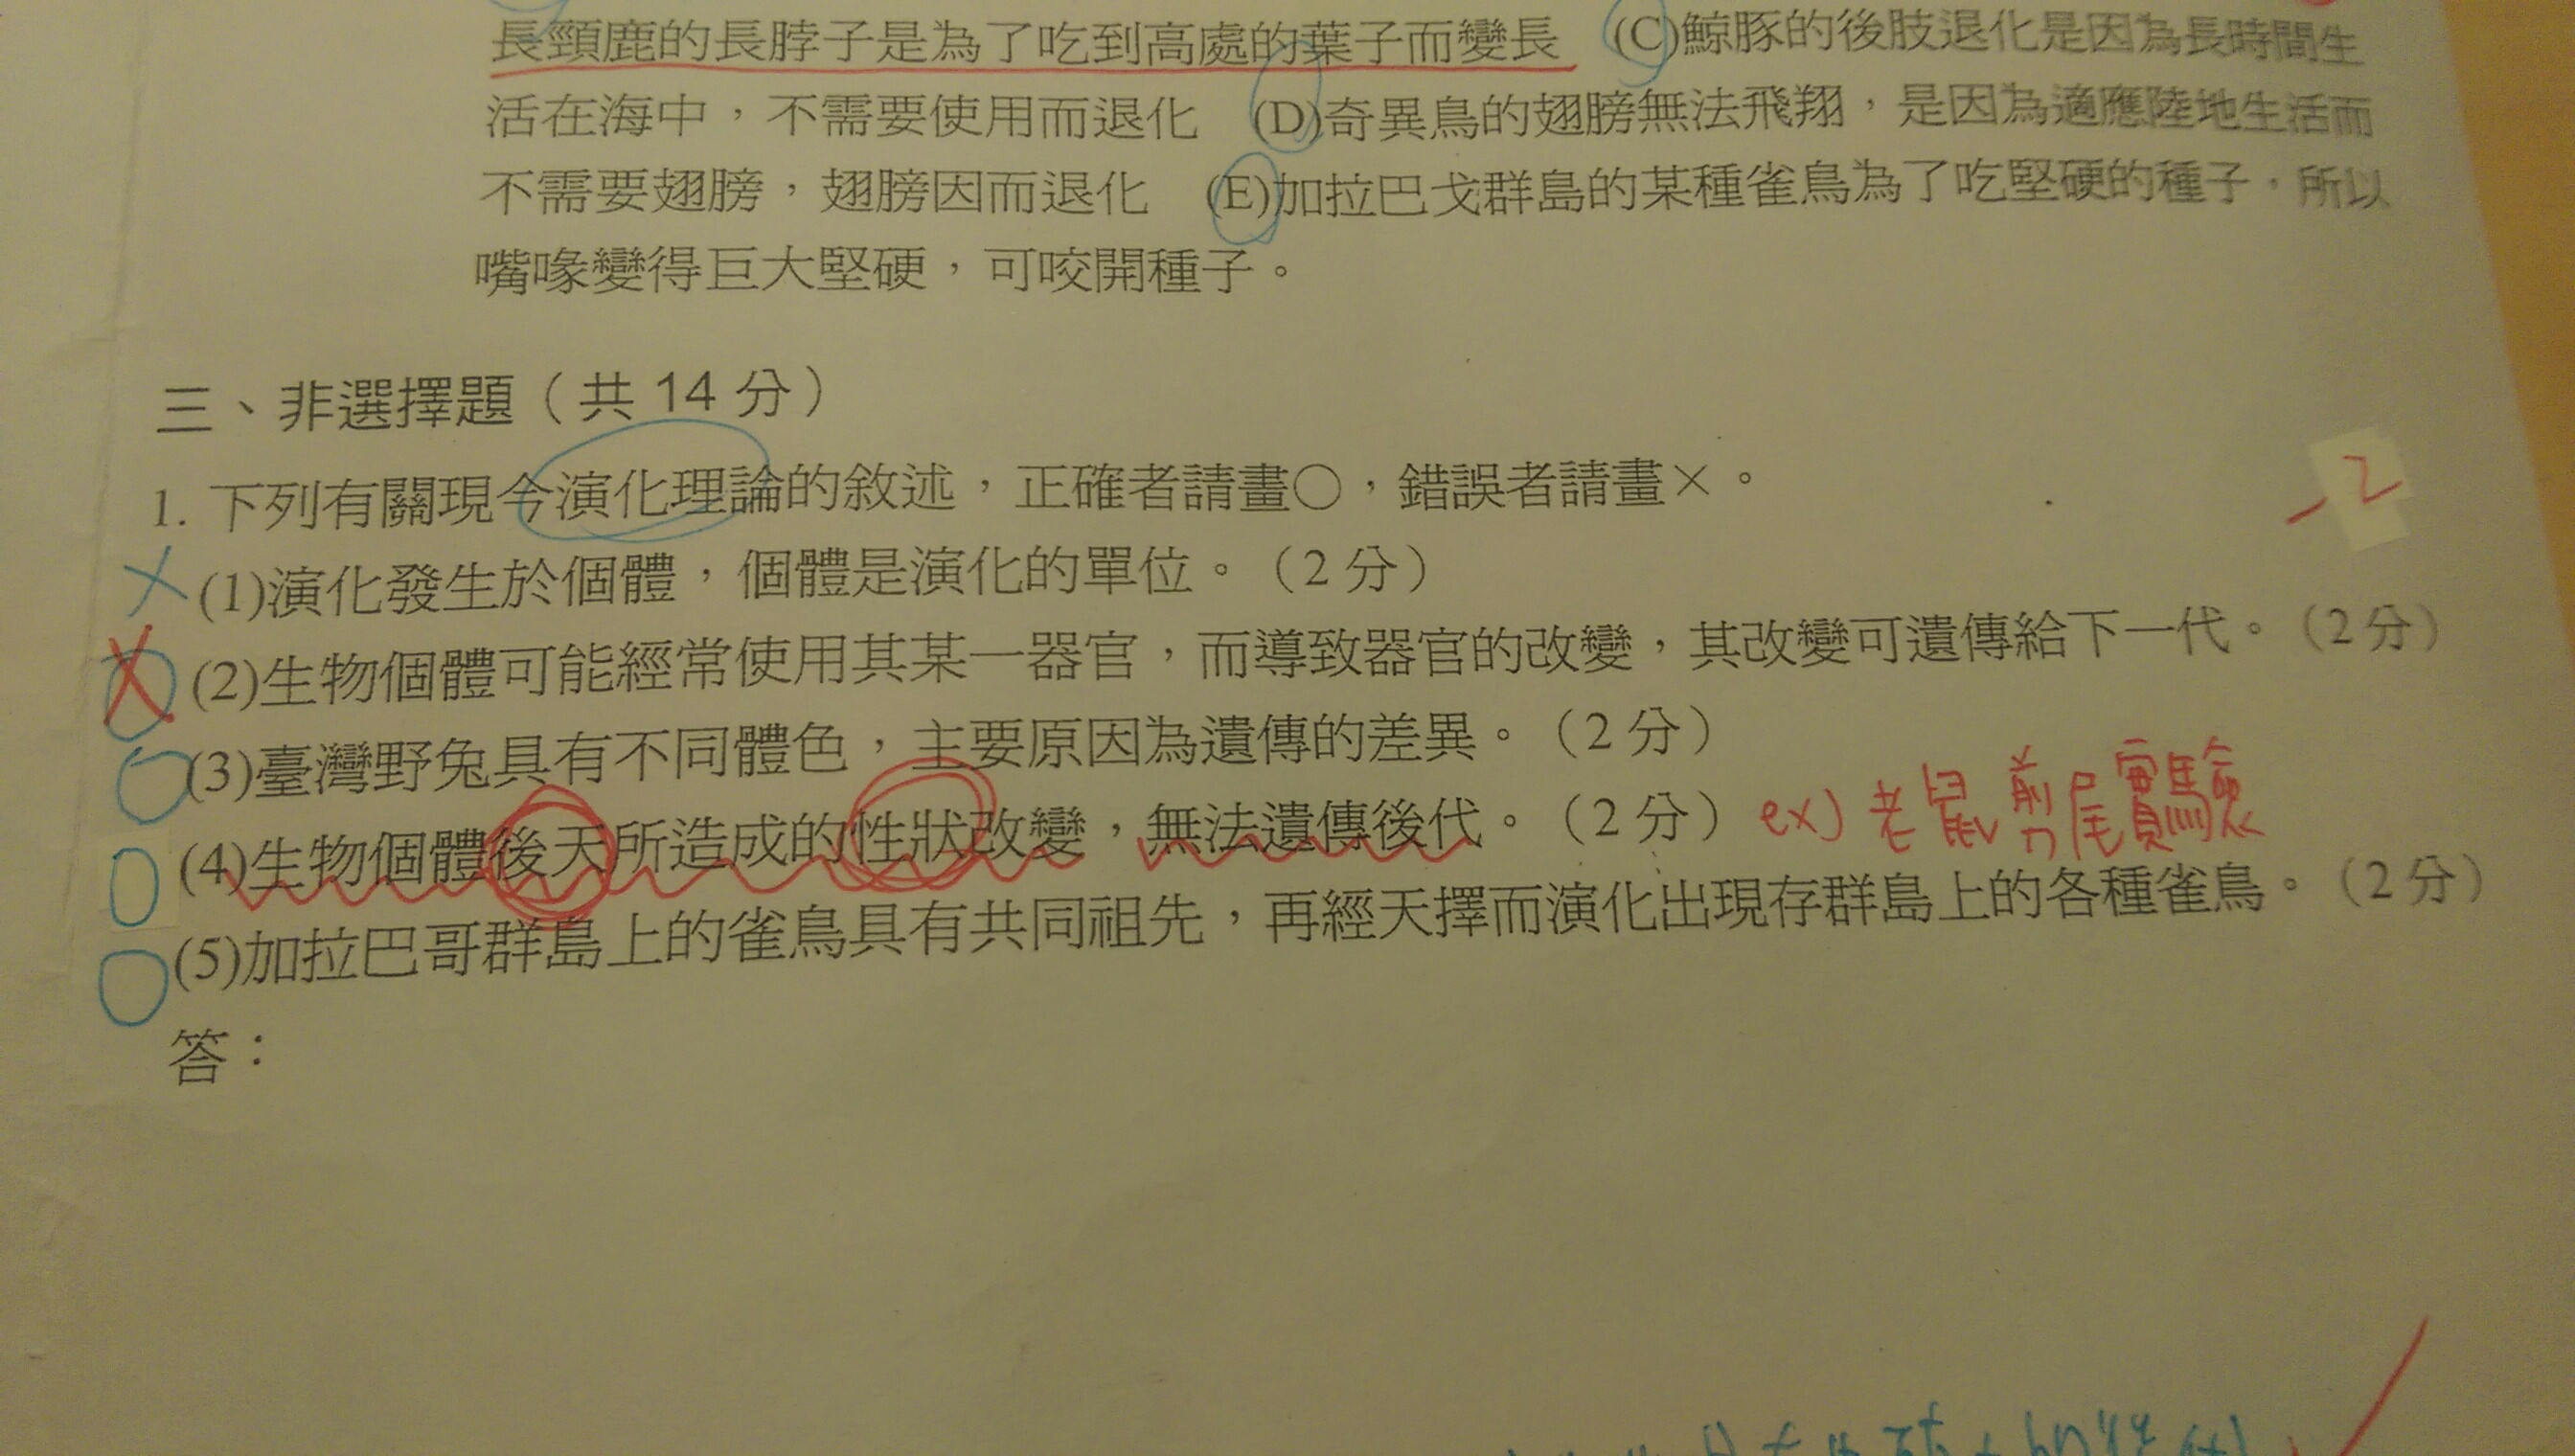 長頸鹿的長脖子是為了吃到高處的葉子而變長 (C)鯨豚的後肢退化是因為長時間生
活在海中，不需要使用而退化 (D)奇異鳥的翅膀無法飛翔，是因為適應陸地生活而
不需要翅膀，翅膀因而退化 (E)加拉巴戈群島的某種雀鳥為了吃堅硬的種子，所以
嘴喙變得巨大堅硬，可咬開種子。
三、非選擇題（共14分）
1. 下列有關現今演化理論的敘述，正確者請畫○，錯誤者請畫×。 -2
× (1)演化發生於個體，個體是演化的單位。（2分）
X (2)生物個體可能經常使用其某一器官，而導致器官的改變，其改變可遺傳給下一代。（2分）
○ (3)臺灣野兔具有不同體色，主要原因為遺傳的差異。（2分）
○ (4)生物個體後天所造成的性狀改變，無法遺傳後代。（2分） ex) 老鼠剪尾實驗
○ (5)加拉巴哥群島上的雀鳥具有共同祖先，再經天擇而演化出現存群島上的各種雀鳥。（2分）
答：